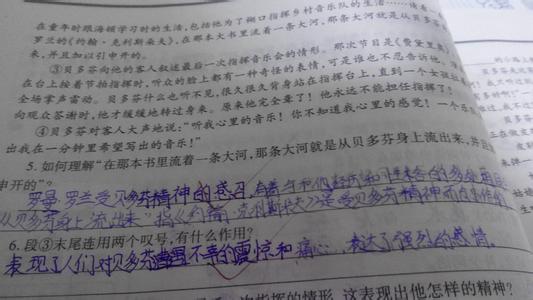 在童年时跟海顿学习时的生活,包括他为了糊口指挥乡村音乐队的生活……读着
罗兰的《约翰·克利斯朵夫》,在那本大书里流着一条大河,那条大河就是从贝多
来,并且加以引申开的。
③贝多芬向他的客人叙述最后一次指挥音乐会的情形。那次节目是《费黛里奥》
在台上按着节拍指挥时,听众的脸上都有一种奇怪的表情,可是谁也不忍告诉他。演
全场掌声雷动。贝多芬什么也听不见,很久很久背身站在指挥台上,直到一个女孩拉
向观众答谢时,他才缓缓地转过身来。原来他完全聋了!他永远不能担任指挥了!
④贝多芬对客人大声地说:“听我心里的音乐!你不知道我心里的感觉!一个乐
出我在一分钟里希望写出的音乐!”
5. 如何理解“在那本书里流着一条大河,那条大河就是从贝多芬身上流出来,并且
申开的”?
罗曼·罗兰受贝多芬精神的感召
从贝多芬身上流出来”指《约翰·克利斯朵夫》是受贝多芬精神而
6. 段③末尾连用两个叹号,有什么作用?
表现了人们对贝多芬遭遇不幸的震惊和痛心,表达了强烈的感情。
指挥的情形,这表现出他怎样的精神?